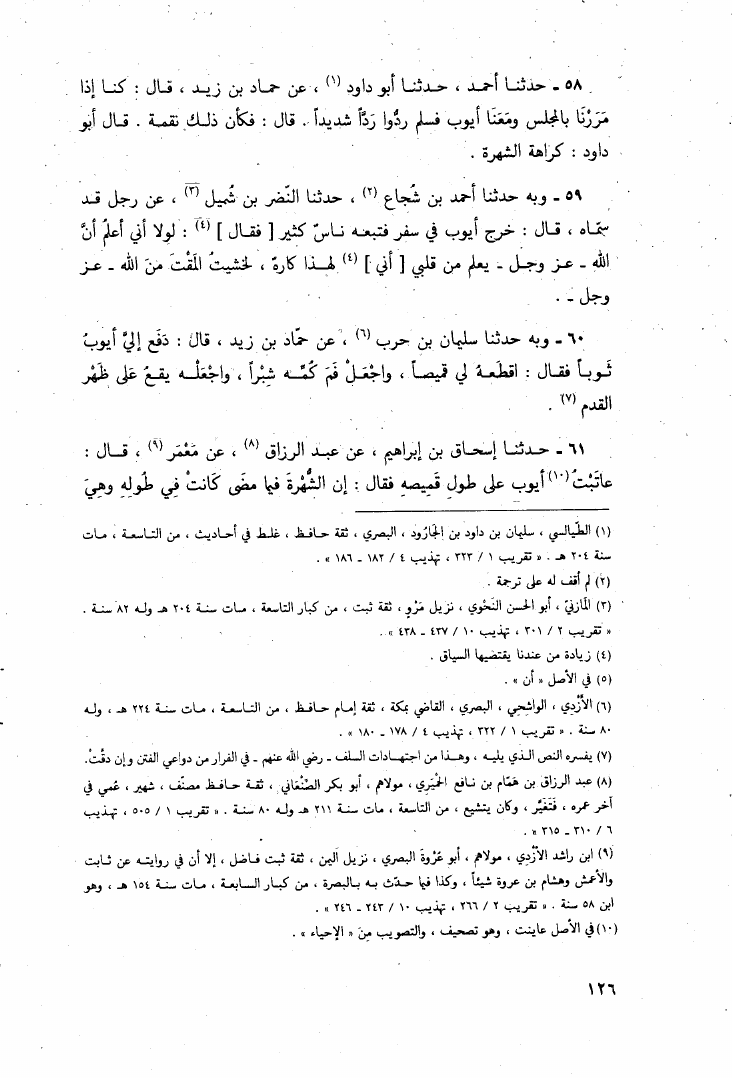 ٥٨ ـ حدثنا أحمد ، حدثنا أبو داود (١) ، عن حماد بن زيد ، قال : كنا إذا
مَرَرْنَا بالمجلس ومَعَنَا أيوب فسلم ردُّوا رَدًّا شديداً . قال : فكأن ذلك نقمة . قال أبو
داود : كراهة الشهرة .
٥٩ ـ وبه حدثنا أحمد بن شُجاع (٢) ، حدثنا النّضر بن شُميل (٣) ، عن رجل قد
سمّاه ، قال : خرج أيوب في سفر فتبعه ناسٌ كثير [ فقال ] (٤) : لولا أني أعلمُ أنَّ
الله ـ عز وجل ـ يعلم من قلبي [ أني ] (٤) لهذا كارهٌ ، لخشيتُ المَقْتَ منَ الله ـ عز
وجل ـ .
٦٠ ـ وبه حدثنا سليمان بن حرب (٦) ، عن حمّاد بن زيد ، قالَ : دَفَع إليَّ أيوبُ
ثَوباً فقال : اقطَعهُ لي قميصاً ، واجْعَلْ فَمَ كُمِّه شِبْراً ، واجْعَلْه يقعُ عَلى ظَهْر
القدم (٧) .
٦١ ـ حدثنا إسحاق بن إبراهيم ، عن عبد الرزاق (٨) ، عن مَعْمَر (٩) ، قال :
عاتَبْتُ (١٠) أيوب على طولِ قَميصهِ فقال : إن الشُّهْرةَ فيما مضى كَانتْ فِي طُولِهِ وهِيَ
(١) الطيالسي ، سليمان بن داود بن الجَارُود ، البصري ، ثقة حافظ ، غلط في أحاديث ، من التاسعة ، مات
سنة ٢٠٤ هـ . « تقريب ١ / ٣٢٣ ، تهذيب ٤ / ١٨٢ ـ ١٨٦ » .
(٢) لم أقف له على ترجمة .
(٣) المَازنيّ ، أبو الحسن النَّحْوي ، نزيل مَرْو ، ثقة ثبت ، من كبار التاسعة ، مات سنة ٢٠٤ هـ وله ٨٢ سنة .
« تقريب ٢ / ٣٠١ ، تهذيب ١٠ / ٤٣٧ ـ ٤٣٨ » .
(٤) زيادة من عندنا يقتضيها السياق .
(٥) في الأصل « أن » .
(٦) الأزْدي ، الواشِحِي ، البصري ، القاضي بمكة ، ثقة إمام حافظ ، من التاسعة ، مات سنة ٢٢٤ هـ ، وله
٨٠ سنة . « تقريب ١ / ٣٢٢ ، تهذيب ٤ / ١٧٨ ـ ١٨٠ » .
(٧) يفسره النص الذي يليه ، وهذا من اجتهادات السلف ـ رضي الله عنهم ـ في الفرار من دواعي الفتن وإن دقّتْ.
(٨) عبد الرزاق بن هَمّام بن نافع الحِمْيَري ، مولاهم ، أبو بكر الصَّنْعَاني ، ثقة حافظ مصنّف ، شهير ، عُمي في
آخر عمره ، فَتَغَيَّر ، وكان يتشيع ، من التاسعة ، مات سنة ٢١١ هـ وله ٨٠ سنة . « تقريب ١ / ٥٠٥ ، تهذيب
٦ / ٣١٠ ـ ٣١٥ » .
(٩) ابن راشد الأزْدي ، مولاهم ، أبو عُرْوةَ البصري ، نزيل اليمن ، ثقة ثبت فاضل ، إلا أن في روايته عن ثابت
والأعمش وهشام بن عروة شيئاً ، وكذا فيما حدّث به بالبصرة ، من كبار السابعة ، مات سنة ١٥٤ هـ ، وهو
ابن ٥٨ سنة . « تقريب ٢ / ٢٦٦ ، تهذيب ١٠ / ٢٤٣ ـ ٢٤٦ » .
(١٠) في الأصل عاينت ، وهو تصحيف ، والتصويب مِنَ « الإحياء » .
١٢٦